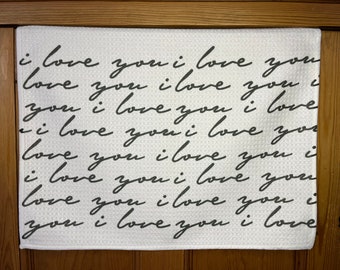 i love you i love
love you i love you
you i love you i love
i love you i love you
love you i love you i
i love you i love you
love you i love you i
you i love you i love